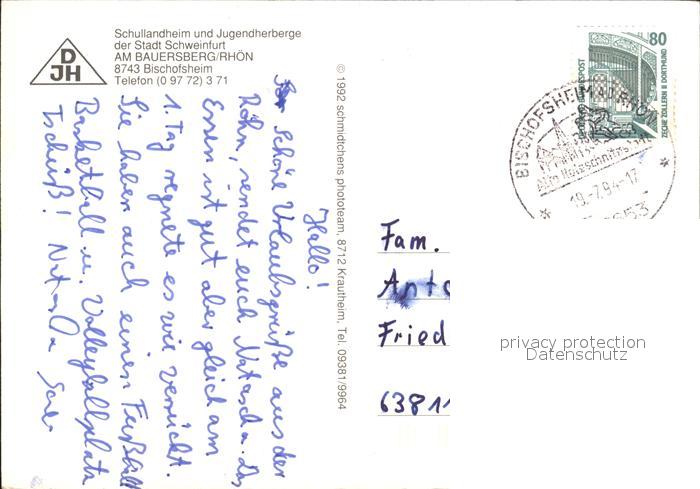 DJH
Schullandheim und Jugendherberge
der Stadt Schweinfurt
AM BAUERSBERG/RHÖN
8743 Bischofsheim
Telefon (0 97 72) 3 71
Hallo!
Schöne Urlaubsgrüße aus der
Röhn, sendet euch Natascha. Das
Essen ist gut aber gleich am
1. Tag regnete es wie verrückt.
Sie haben auch einen Fußball
Basketball u. Volleyballplatz
Tschüß! Natascha
© 1992 schmidtchens phototeam, 8712 Krautheim, Tel. 09381/9964
80
DEUTSCHE BUNDESPOST
ZECHE ZOLLERN II DORTMUND
BISCHOFSHEIM A D RHÖN
19.-7.94-17
Fam.
Anto
Fried
63811
privacy protection
Datenschutz